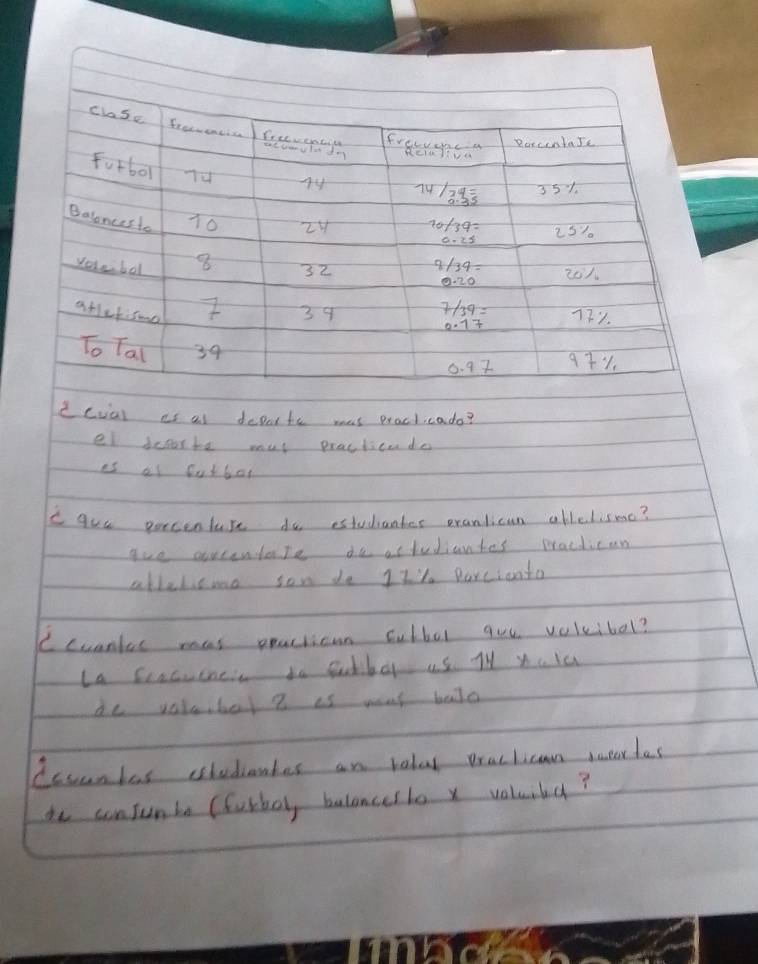 clase Frecuencia Frecuencia acumulada Frecuencia Relativa Porcentaje
Futbol 14 14 14/39= 0.35 35%
Baloncesto 10 24 10/39= 0.25 25%
voleibol 8 32 8/39= 0.20 20%
atletismo 7 39 7/39= 0.17 17%
To Tal 39 0.97 97%
¿cual es al deporte mas practicado?
el deporte mas practicado
es el futbol
¿que porcentaje de estudiantes prantican atletismo?
que porcentaje de estudiantes practican
atletismo son de 17% Porciento
¿cuantos mas practican futbol que voleibol?
La frecuencia de futbol es 14 y la
de voleibol 8 es mas bajo
¿cuantos estudiantes en total practican deportes
de conjunto (futbol, baloncesto y voleibol?